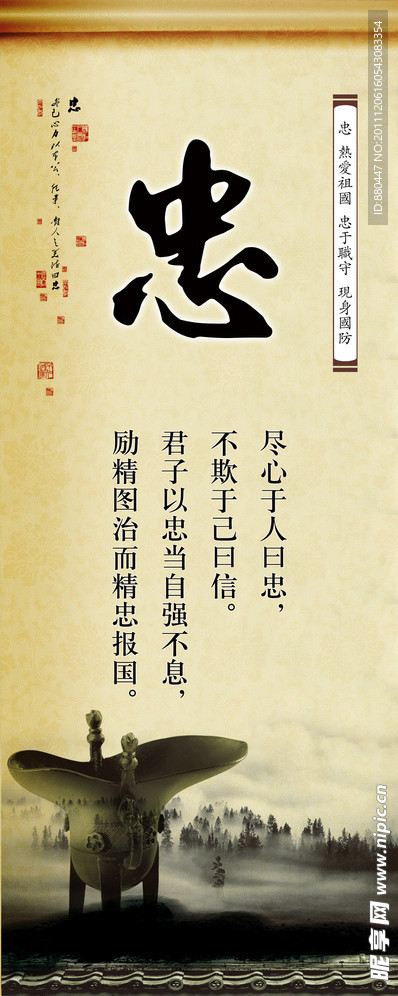 忠
忠 熱愛祖國 忠于職守 現身國防
尽心于人曰忠，
不欺于己曰信。
君子以忠当自强不息，
励精图治而精忠报国。
忠
ID:880447 NO:20111206160543083354
昵享网 www.nipic.cn